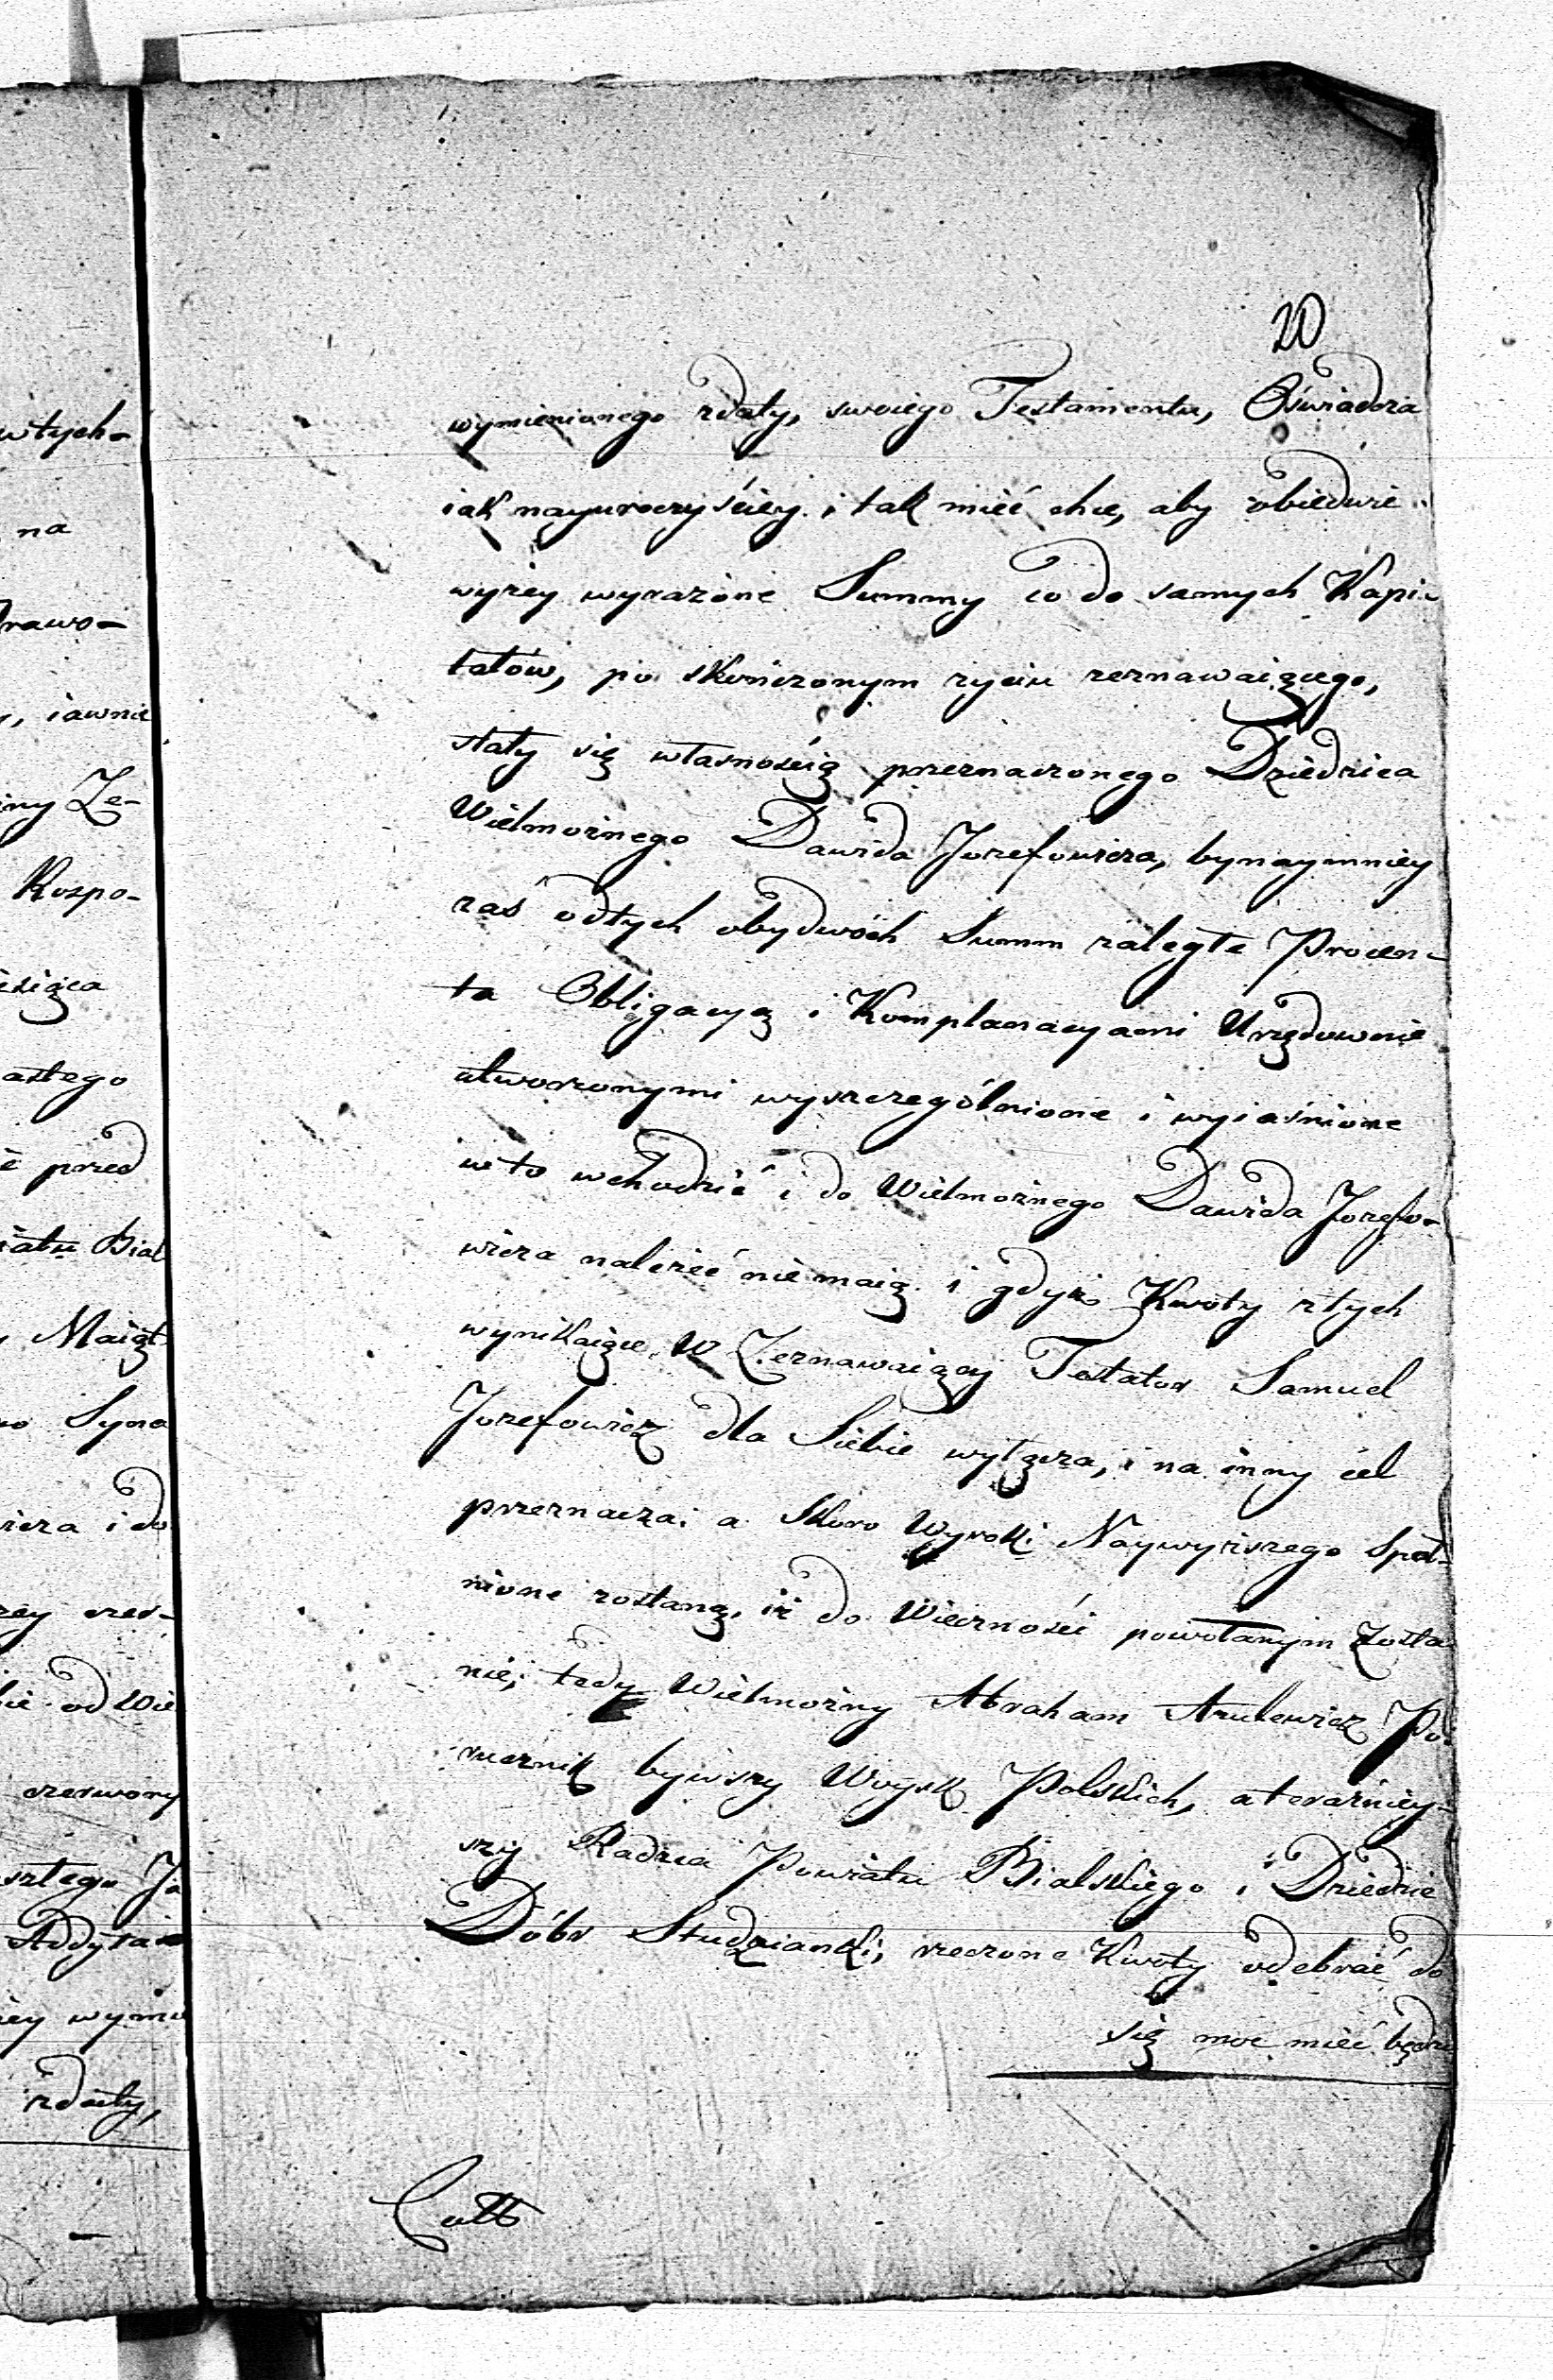 20
wymienionego zdaty, swoiego Testamentu, Oświadcza
iak nayuroczyściey i tak mieć chce, aby obiedwie
wyżey wyrażone Summy co do samych Kapi-
tałów, po skończonym życiu zeznawaiącego,
stały się własnością przeznaczonego Dziedzica
Wielmożnego Dawida Jozefowicza, bynaymniey
zaś odtych obydwóch Summ zaległe Procen-
ta Obligacyą i Komplanacyami Urzędownie
utworzonymi wyszczególnione i wyiaśnione
w to wchodzić i do Wielmożnego Dawida Jozefo-
wicza należeć niemaią i gdyż Kwoty ztych
wynikaiące, W Zeznawaiący Testator Samuel
Jozefowicz dla Siebie wyłącza, i na inny cel
przeznacza; a skoro Wyroki Naywyższego speł-
nione zostaną, iż do Wieczności powołanym zosta
nie, tedy Wielmożny Abraham Azulewicz Po-
rucznik bywszy Woysk Polskich, a teraźniey-
szy Radzca Powiatu Bialskiego i Dziedzic
Dóbr Studzianki, rzeczone Kwoty odebrać do
się moc mieć będzie
wtych-
na
Prawo-
iawnie
Ze-
Rospo-
przed
Bial
Maiąt
Syna
i do
od Wie
czerwony
Jó
wymie
zdaty,